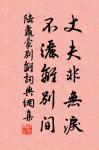 丈夫非無淚
不灑離別間
陸龜蒙別離詞典網集